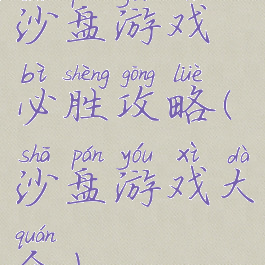 沙盘游戏
bì shèng gōng lüè
必胜攻略(
shā pán yóu xì dà
沙盘游戏大
quán